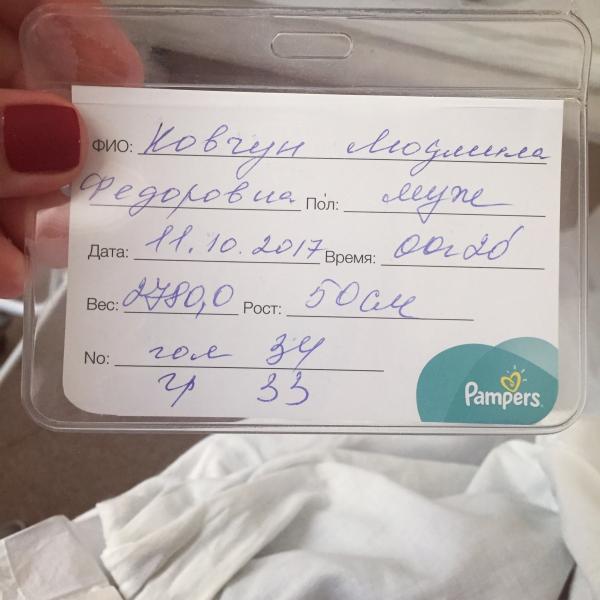 ФИО: Ковчун Людмила
Федоровна Пол: муж
Дата: 11.10.2017 Время: 00ч 20
Вес: 2780,0 Рост: 50 см
No: гол 34
гр 33
Pampers